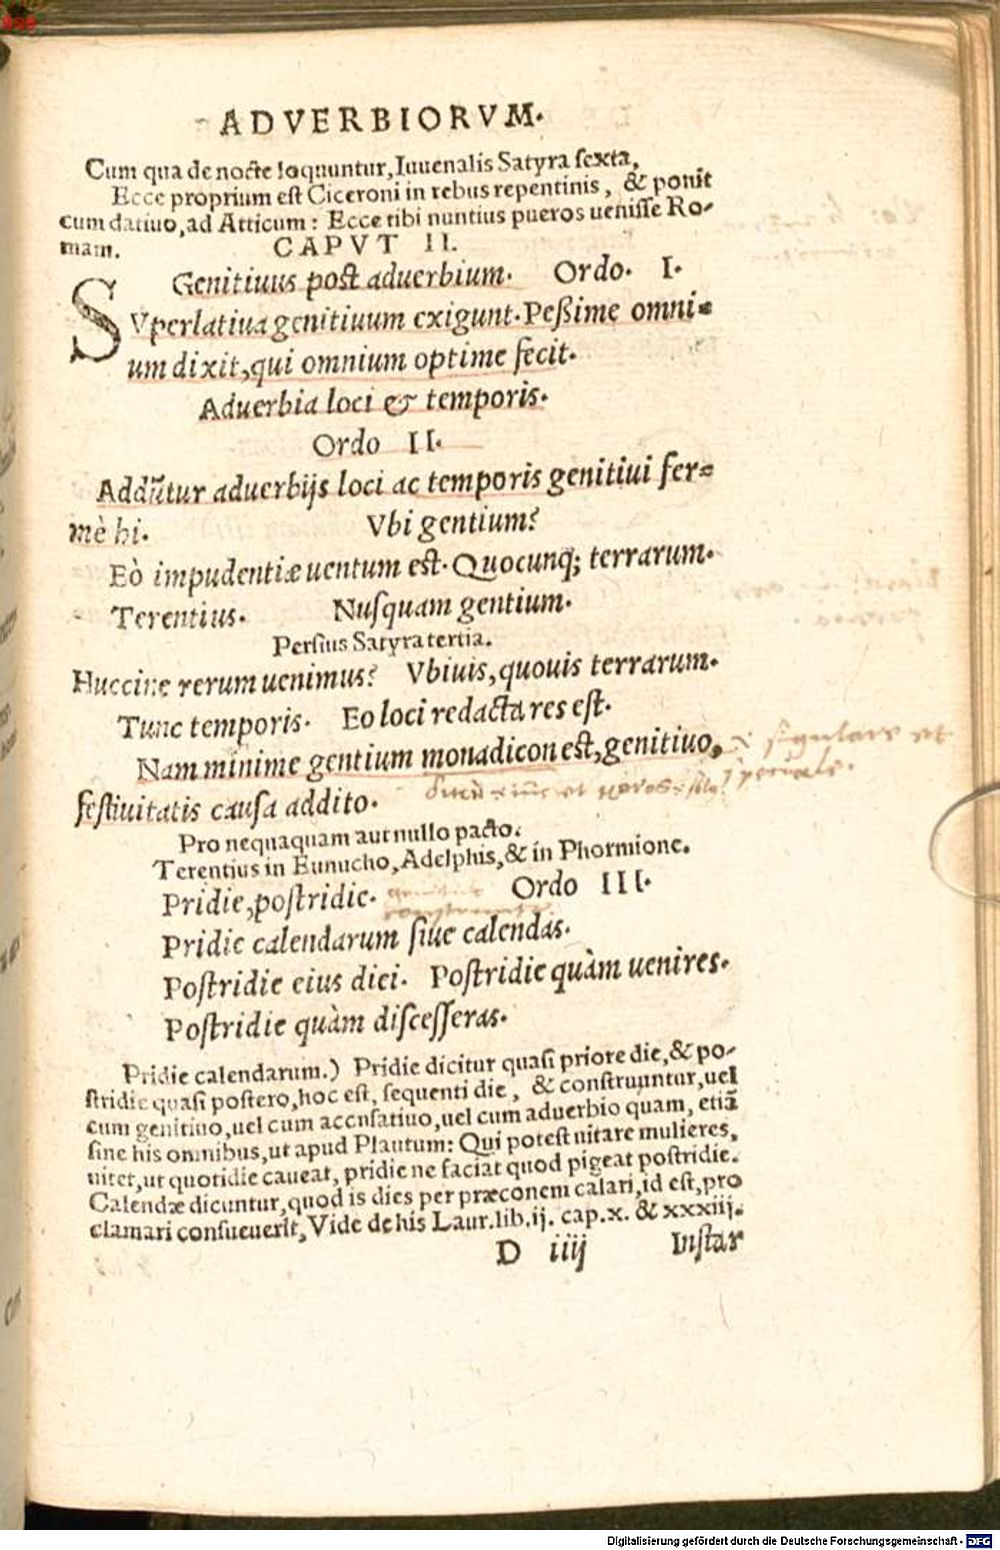 ADVERBIORVM.
Cum qua de nocte loquuntur, Iuuenalis Satyra sexta,
Ecce proprium est Ciceroni in rebus repentinis, & ponit
cum datiuo, ad Atticum: Ecce tibi nuntius pueros uenisse Ro-
mam. CAPVT II.
Genitiuus post aduerbium. Ordo. I.
SVperlatiua genitiuum exigunt. Peßime omni-
um dixit, qui omnium optime fecit.
Aduerbia loci & temporis.
Ordo II.
Addūtur aduerbijs loci ac temporis genitiui fer-
mè hi. Vbi gentium?
Eò impudentiæ uentum est. Quocunq; terrarum.
Terentius. Nusquam gentium.
Persius Satyra tertia.
Huccine rerum uenimus? Vbiuis, quouis terrarum.
Tunc temporis. Eo loci redacta res est.
Nam minime gentium monadicon est, genitiuo, singulare et
speciale.
festiuitatis causa addito.
Pro nequaquam aut nullo pacto.
Terentius in Eunucho, Adelphis, & in Phormione.
Pridie, postridie. Ordo III.
Pridie calendarum siue calendas.
Postridie eius diei. Postridie quàm uenires.
Postridie quàm discesseras.
Pridie calendarum.) Pridie dicitur quasi priore die, & po-
stridie quasi postero, hoc est, sequenti die, & construuntur, uel
cum genitiuo, uel cum accusatiuo, uel cum aduerbio quam, etiā
sine his omnibus, ut apud Plautum: Qui potest uitare mulieres,
uitet, ut quotidie caueat, pridie ne faciat quod pigeat postridie.
Calendæ dicuntur, quod is dies per præconem calari, id est, pro
clamari consueuerit, Vide de his Laur. lib. ij. cap. x. & xxxiij.
D iiij Instar
Digitalisierung gefördert durch die Deutsche Forschungsgemeinschaft - DFG